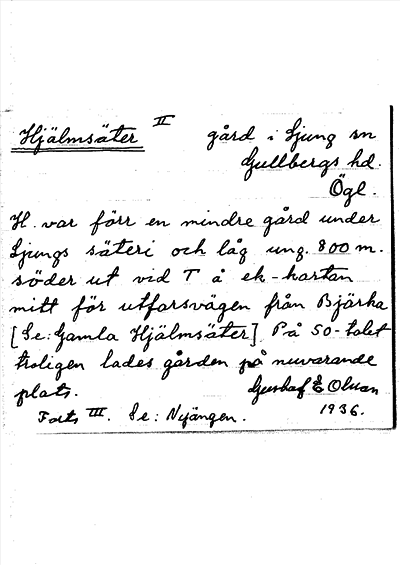 Hjälmsäter II gård i Ljung sn
Gullbergs hd.
Ögl.
H. var förr en mindre gård under
Ljungs säteri och låg ung. 800 m.
söder ut vid T å ek-kartan
mitt för utfarsvägen från Bjärka
[Se: Gamla Hjälmsäter]. På 50-talet
troligen lades gården på nuvarande
plats. Gustaf E Olsson
Forts III. Se: Nyängen. 1936.